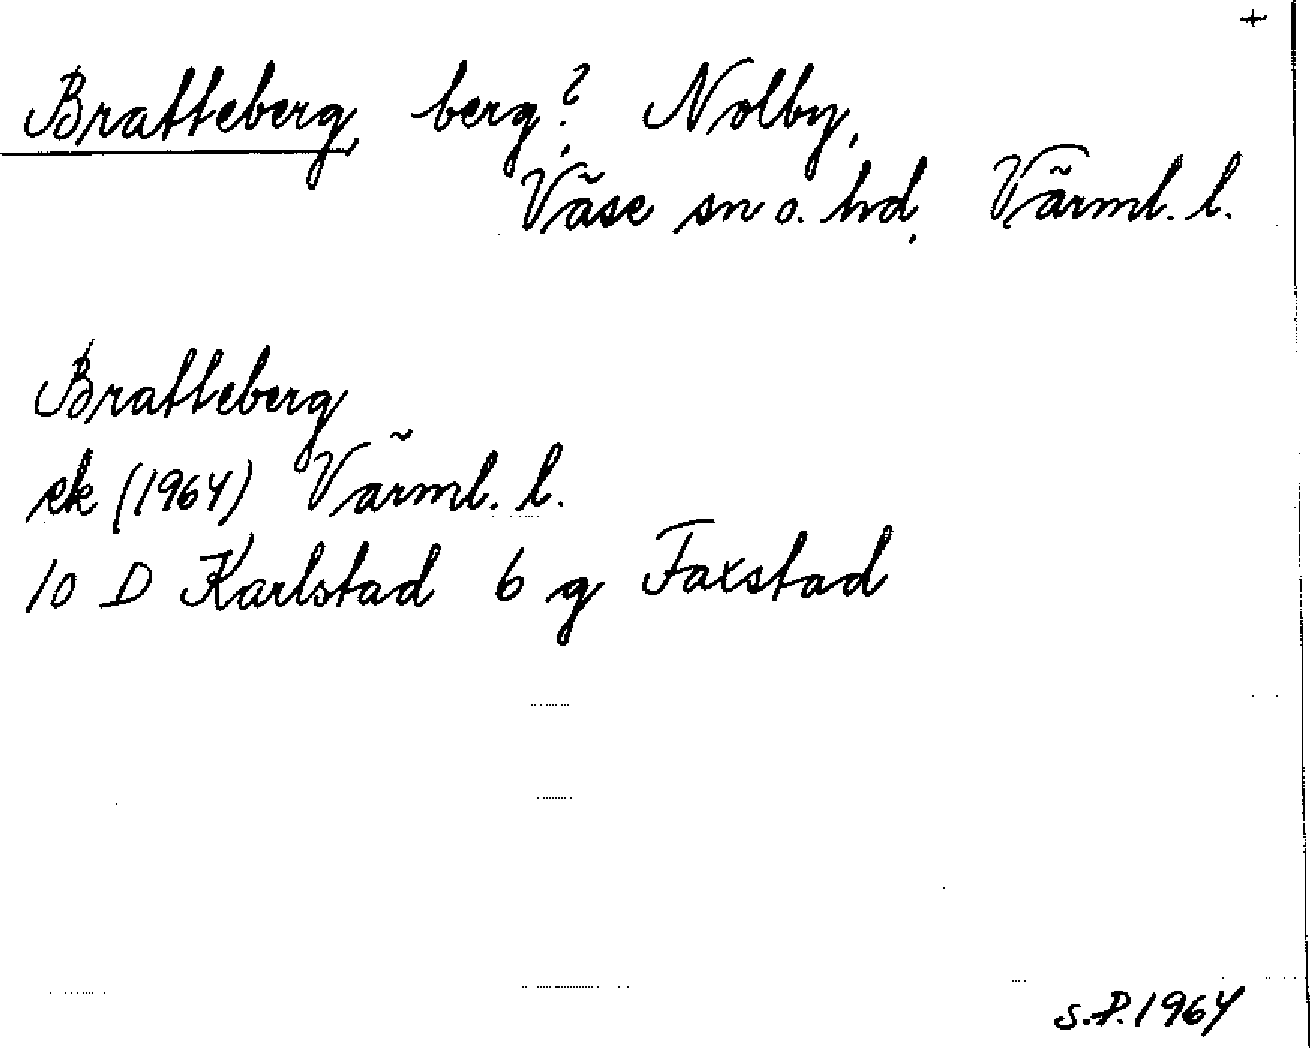 +
Bratteberg, berg? Nolby,
Väse sn o. hd, Värml. l.
Bratteberg
ek (1964) Värml. l.
10 D Karlstad 6 g Faxstad
S.P. 1964